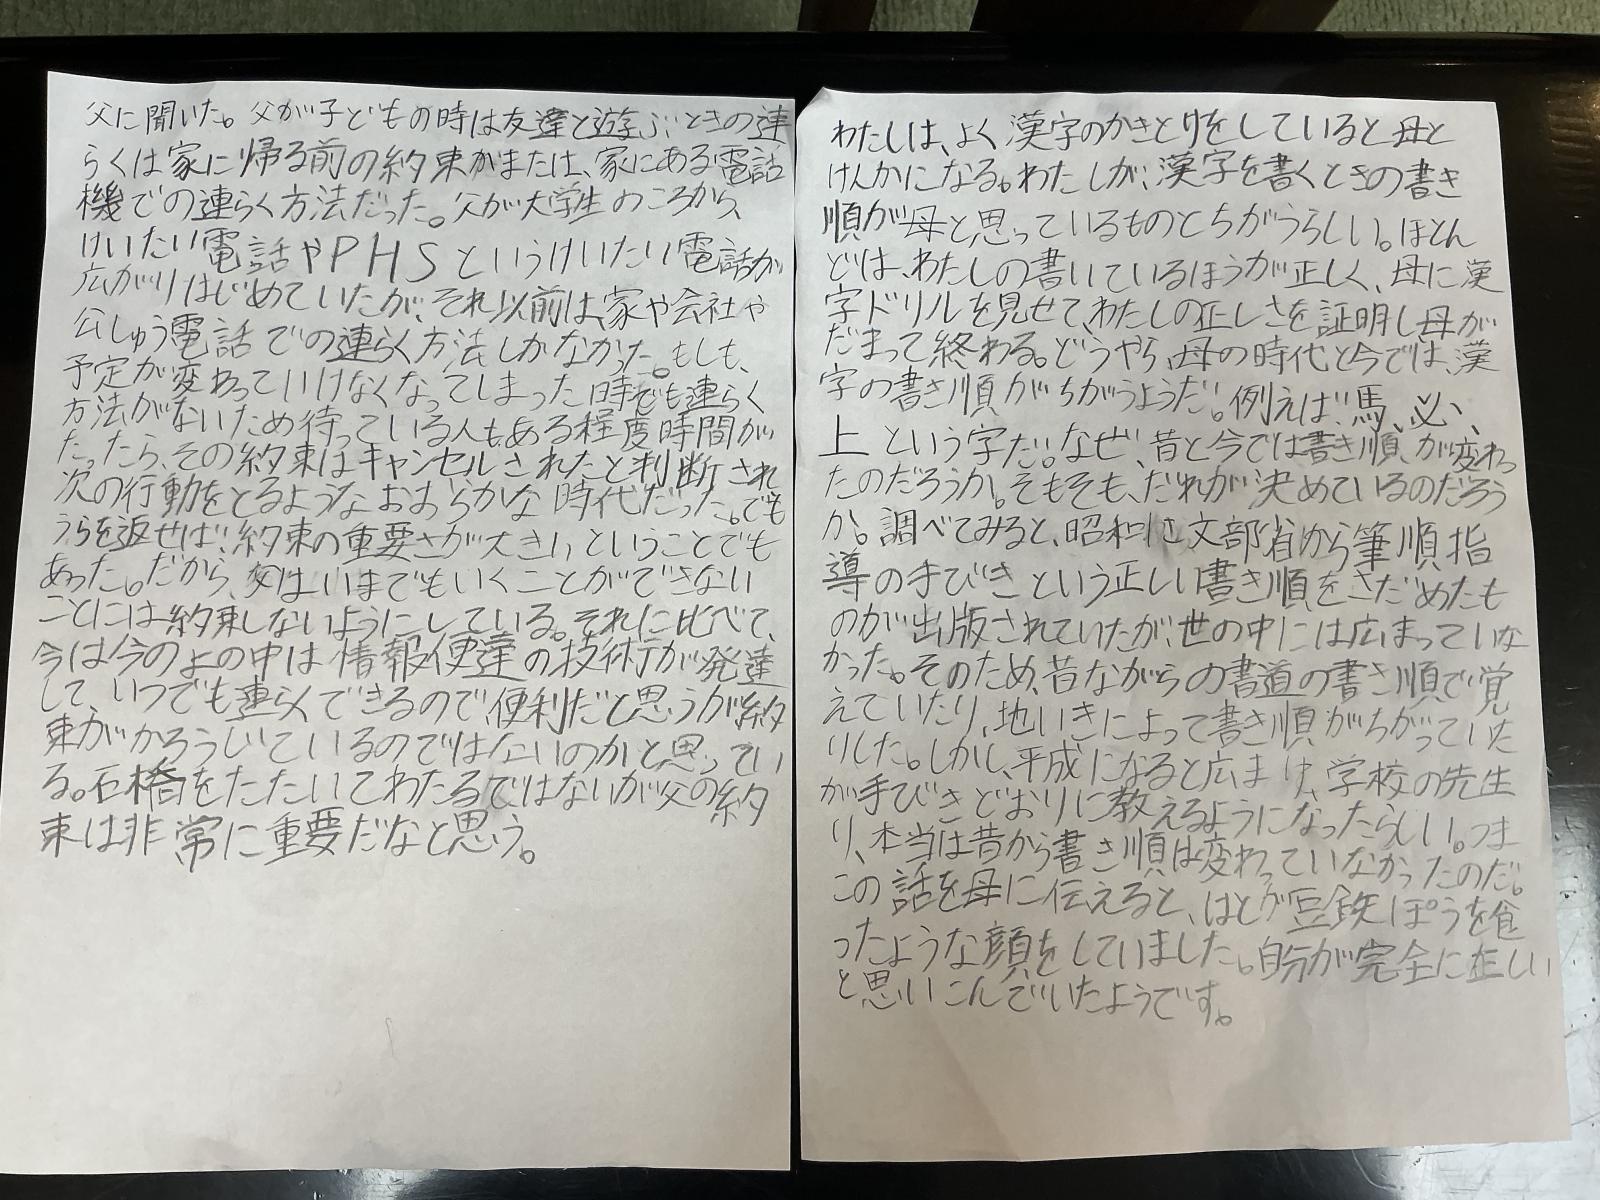 父に聞いた。父が子どもの時は友達と遊ぶときの連
らくは家に帰る前の約束かまたは、家にある電話
機での連らく方法だった。父が大学生のころから、
けいたい電話やPHSというけいたい電話が
広がりはじめていたが、それ以前は、家や会社や
公しゅう電話での連らく方法しかなかった。もしも、
予定が変わっていけなくなってしまった時でも連らく
方法がないため待っている人も、ある程度時間が
たったら、その約束はキャンセルされたと判断され
次の行動をとるようなおおらかな時代だった。でも
うらを返せば、約束の重要さが大きいということでも
あった。だから、父はいまでもいくことができない
ことには約束しないようにしている。それに比べて、
今は今のよの中は情報便達の技術が発達
して、いつでも連らくできるので、便利だと思うが約
束がかろうじているのではないのかと思ってい
る。石橋をたたいてわたるではないが父の約
束は非常に重要だなと思う。
わたしは、よく漢字のかきとりをしていると母と
けんかになる。わたしが、漢字を書くときの書き
順が母と思っているものとちがうらしい。ほとん
どは、わたしの書いているほうが正しく、母に漢
字ドリルを見せて、わたしの正しさを証明し母が
だまって終わる。どうやら、母の時代と今では、漢
字の書き順がちがうようだ。例えば、馬、必、
上という字だ。なぜ、昔と今では書き順が変わっ
たのだろうか。そもそも、だれが決めているのだろう
か。調べてみると、昭和に文部省から筆順指
導の手びきという正しい書き順をさだめたも
のが出版されていたが、世の中には広まっていな
かった。そのため、昔ながらの書道の書き順で覚
えていたり、地いきによって書き順がちがっていた
りした。しかし、平成になると広まり、学校の先生
が手びきどおりに教えるようになったらしい。つま
り、本当は昔から書き順は変わっていなかったのだ。
この話を母に伝えると、はとが豆鉄ぽうを食
ったような顔をしていました。自分が完全に正しい
と思いこんでいたようです。